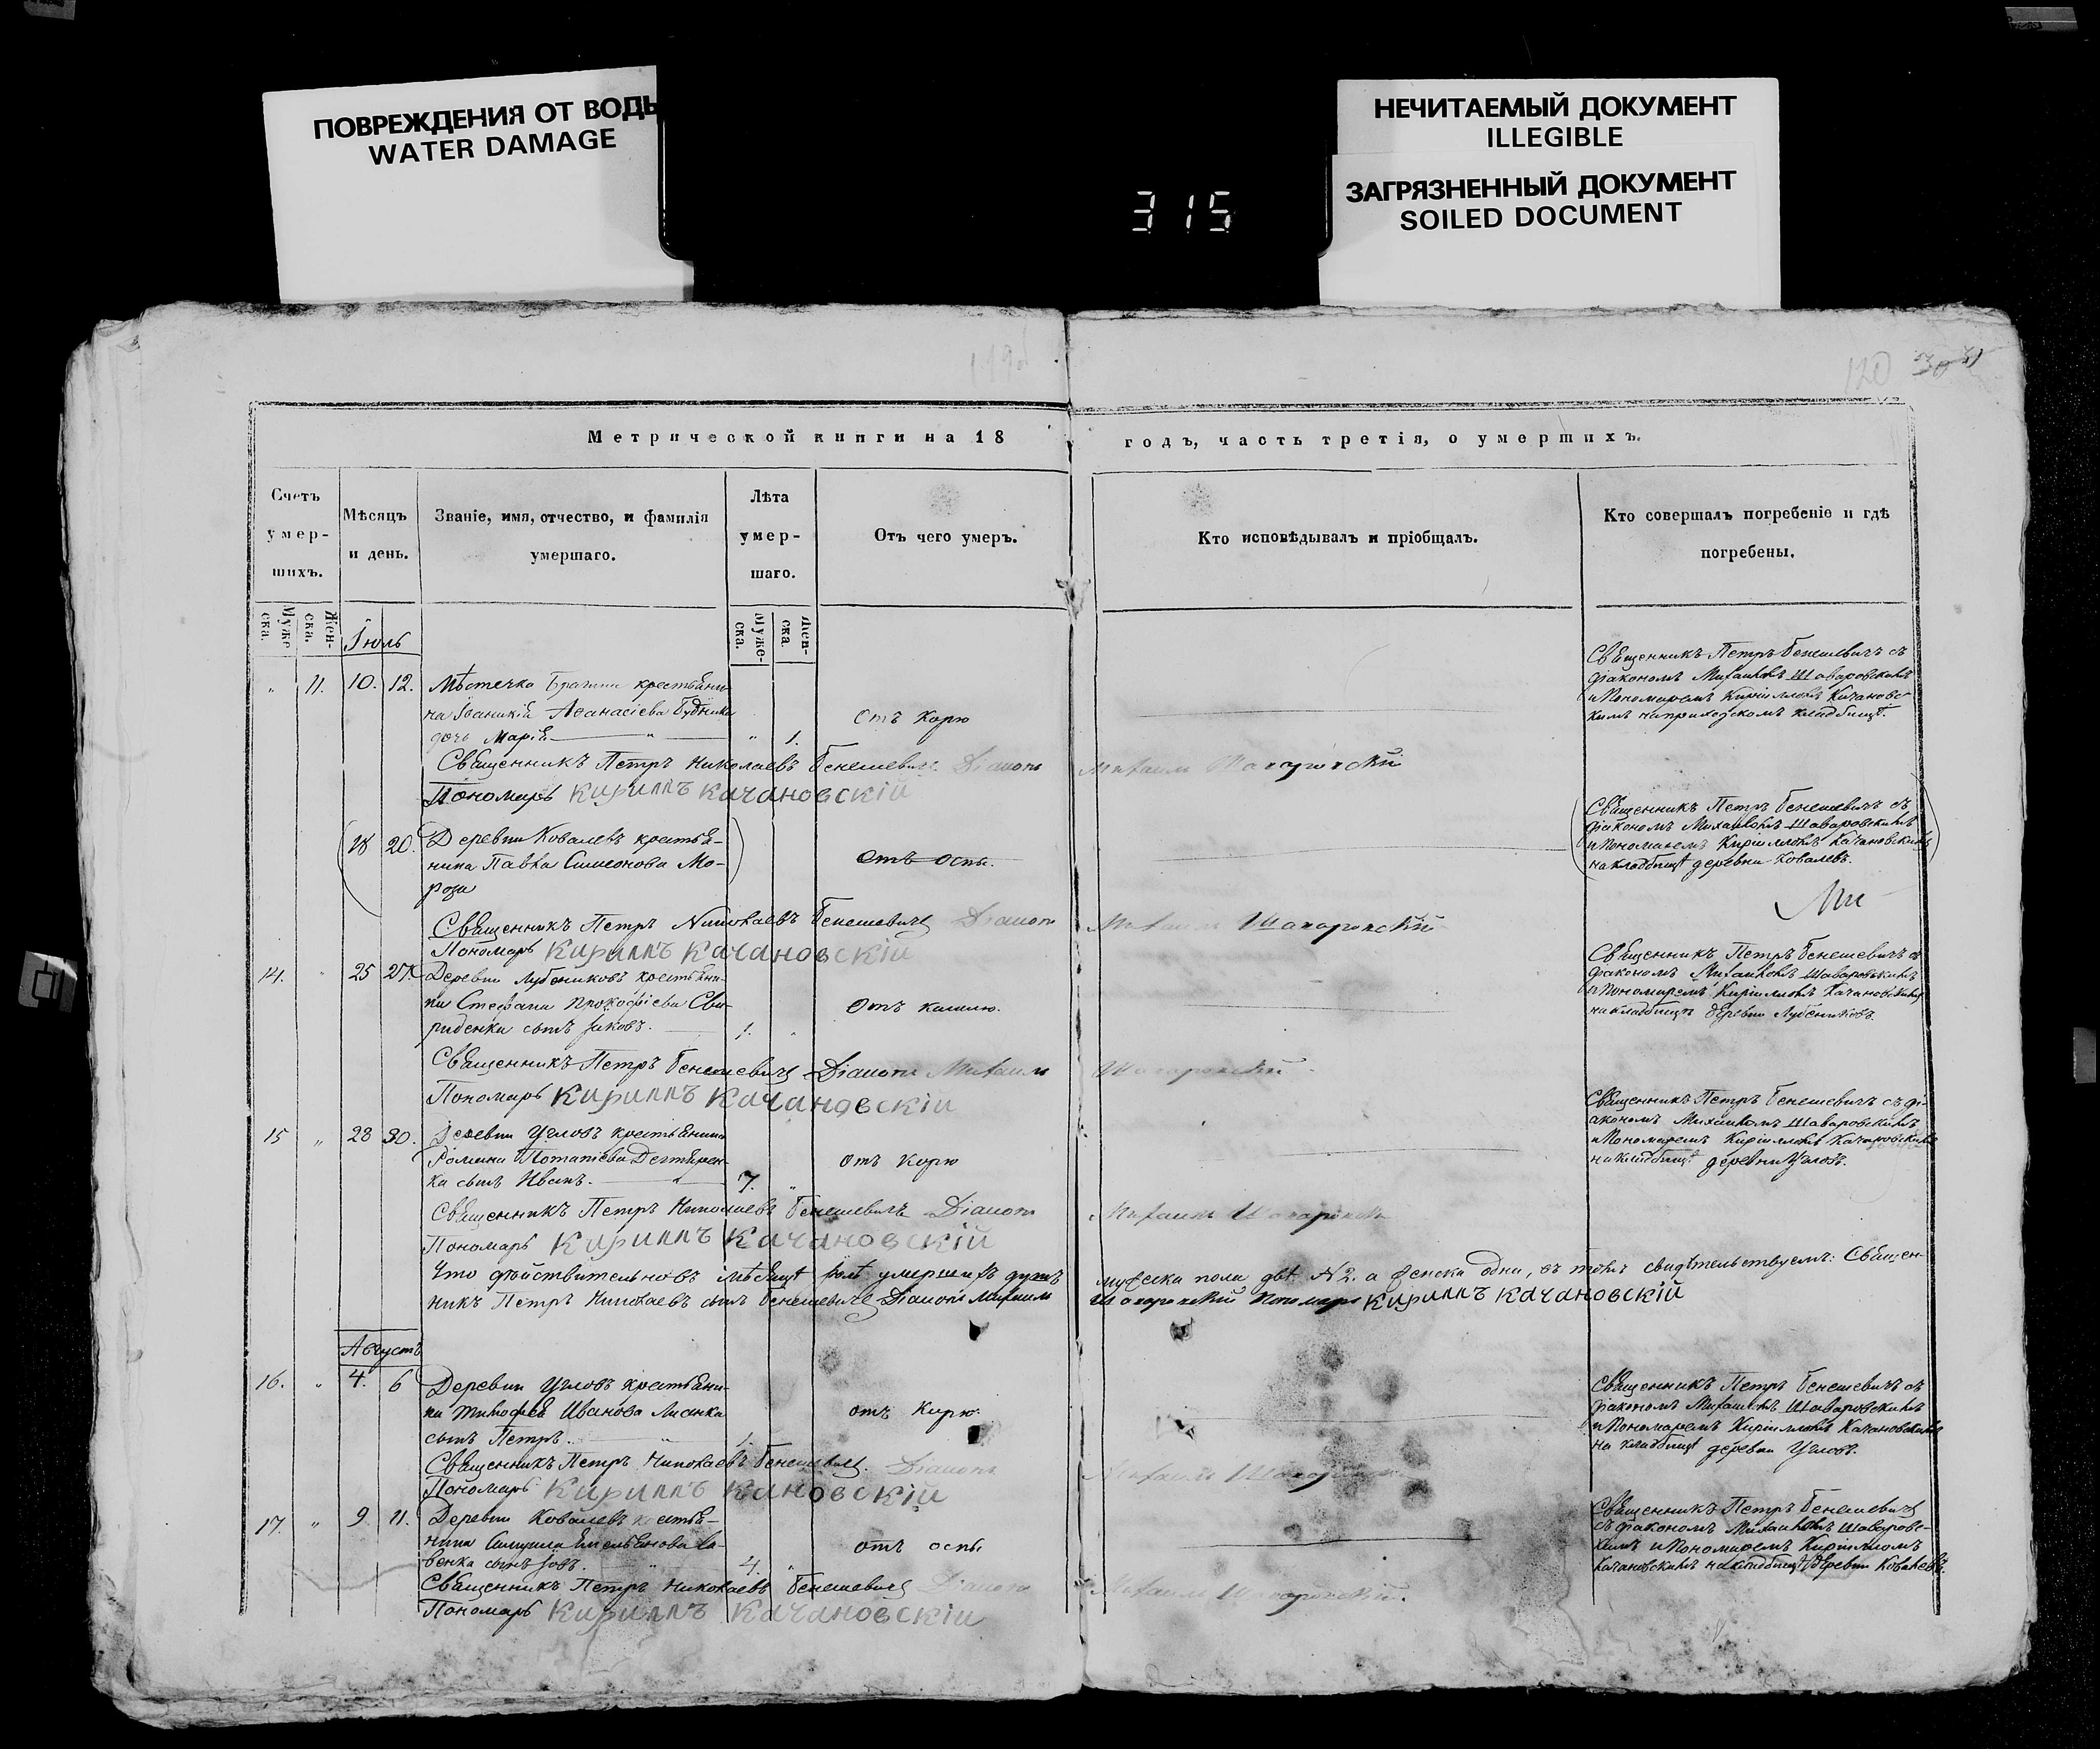 ПОВРЕЖДЕНИЯ ОТ ВОДЫ
WATER DAMAGE
НЕЧИТАЕМЫЙ ДОКУМЕНТ
ILLEGIBLE
ЗАГРЯЗНЕННЫЙ ДОКУМЕНТ
SOILED DOCUMENT
315
120 30
Метрической книги на 18 годъ, часть третія, о умершихъ.
Счетъ умер-шихъ.
Муже ска.
Жен-ска.
Мѣсяцъ и день.
Званіе, имя, отчество, и фамилія умершаго.
Лѣта умер-шаго.
Муже-ска.
Жен-ска
Отъ чего умеръ.
Кто исповѣдывалъ и пріобщалъ.
Кто совершалъ погребеніе и гдѣ погребены.
Іюль
„ 11. 10. 12. Мѣстечка Брагина крестьяни-
на Іоаникія Аѳанасіева Будника
дочь Марія " 1.
отъ корю
Священникъ Петръ Бенешевичъ съ
діакономъ Михаиломъ Шаваровскимъ
и Пономаремъ Кирилломъ Качановс-
кимъ на приходскомъ кладбищѣ.
Священникъ Петръ Николаевъ Бенешевичъ Діаконъ Михаилъ
Пономарь Кириллъ Качановскій
18 20. Деревни Ковалевъ крестья-
нина Павла Симеонова Мо-
роза
отъ оспы.
Священникъ Петръ Бенешевичъ съ
діакономъ Михаиломъ Шаваровскимъ
и Пономаремъ Кирилломъ Качановскимъ
на кладбищѣ деревни Ковалевъ.
Священникъ Петръ Николаевъ Бенешевичъ Діаконъ Михаилъ
Пономарь Кириллъ Качановскій
14. " 25 27. Деревни Лубениковъ крестьяни-
на Стефана Прокофіева Сви-
риденка сынъ Іаковъ. 1. "
Отъ кашлю.
Священникъ Петръ Бенешевичъ съ
діакономъ Михаиломъ Шаваровскимъ
и Пономаремъ Кирилломъ Качановскимъ
на кладбищѣ деревни Лубениковъ.
Священникъ Петръ Бенешевичъ Діаконъ Михаилъ
Пономарь Кириллъ Качановскій
15 „ 28 30. Деревни Угловъ крестьянина
Романа Потапіева Дегтярен-
ка сынъ Иванъ. 7. "
отъ корю
Священникъ Петръ Бенешевичъ съ ді-
акономъ Михаиломъ Шаваровскимъ
и Пономаремъ Кирилломъ
на кладбищѣ деревни Угловъ.
Священникъ Петръ Николаевъ Бенешевичъ Діаконъ Михаилъ
Пономарь Кириллъ Качановскій
Что дѣйствительно въ мѣсяцѣ Іюлѣ умершихъ душъ мужеска пола двѣ №2. а женска одна, въ томъ свидѣтельствуемъ: Священ-
никъ Петръ Николаевъ сынъ Бенешевичъ Діаконъ Михаилъ Пономарь Кириллъ Качановскій
Августъ
16. " 4. 6 Деревни Угловъ крестьяни-
на Тимофея Иванова
сынъ Петръ. 1.
отъ корю.
Священникъ Петръ Бенешевичъ съ
діакономъ Михаиломъ Шаваровскимъ
и Пономаремъ Кирилломъ Качановскимъ
на кладбищѣ деревни Угловъ.
Священникъ Петръ Николаевъ Бенешевичъ. Діаконъ
Пономарь Кириллъ Кановскій
17. " 9. 11. Деревни Ковалевъ крестья-
нина Емельянова
сынъ Іовъ. 4. "
отъ оспы
Священникъ Петръ Бенешевичъ
съ діакономъ Михаиломъ Шаваровс-
кимъ и Пономаремъ Кирилломъ
Качановскимъ на кладбищѣ деревни Ковалевъ.
Священникъ Петръ Николаевъ Бенешевичъ Діаконъ Михаилъ
Пономарь Кириллъ Качановскій